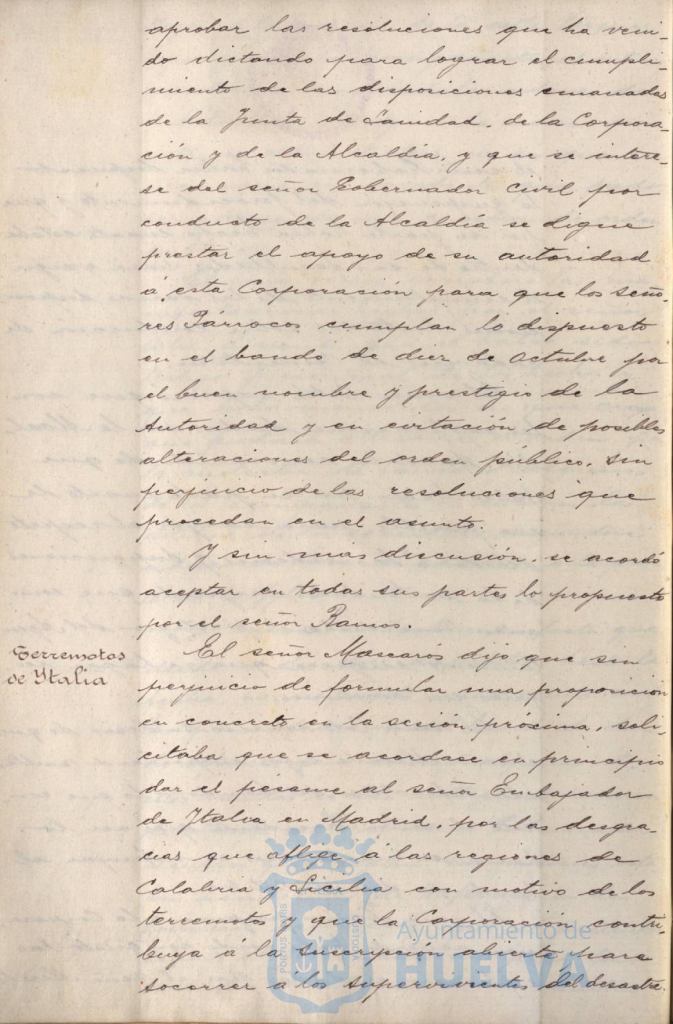 aprobar las resoluciones que ha veni-
do dictando para lograr el cumpli-
miento de las disposiciones emanadas
de la Junta de Sanidad, de la Corpora-
ción y de la Alcaldía, y que se intere-
se del señor Gobernador civil por
conducto de la Alcaldía se digne
prestar el apoyo de su autoridad
á esta Corporación para que los seño-
res Párrocos cumplan lo dispuesto
en el bando de diez de Octubre por
el buen nombre y prestigio de la
Autoridad y en evitación de posibles
alteraciones del orden público, sin
perjuicio de las resoluciones que
procedan en el asunto.
Y sin más discusión, se acordó
aceptar en todas sus partes lo propuesto
por el señor Ramos.
Terremotos
de Italia
El señor Mascarós dijo que sin
perjuicio de formular una proposición
en concreto en la sesión próxima, soli-
citaba que se acordase en principio
dar el pésame al señor Embajador
de Italia en Madrid, por las desgra-
cias que aflige á las regiones de
Calabria y Sicilia con motivo de los
terremotos y que la Corporación contri-
buya á la suscripción abierta para
socorrer a los supervivientes del desastre.
Ayuntamiento de
HUELVA